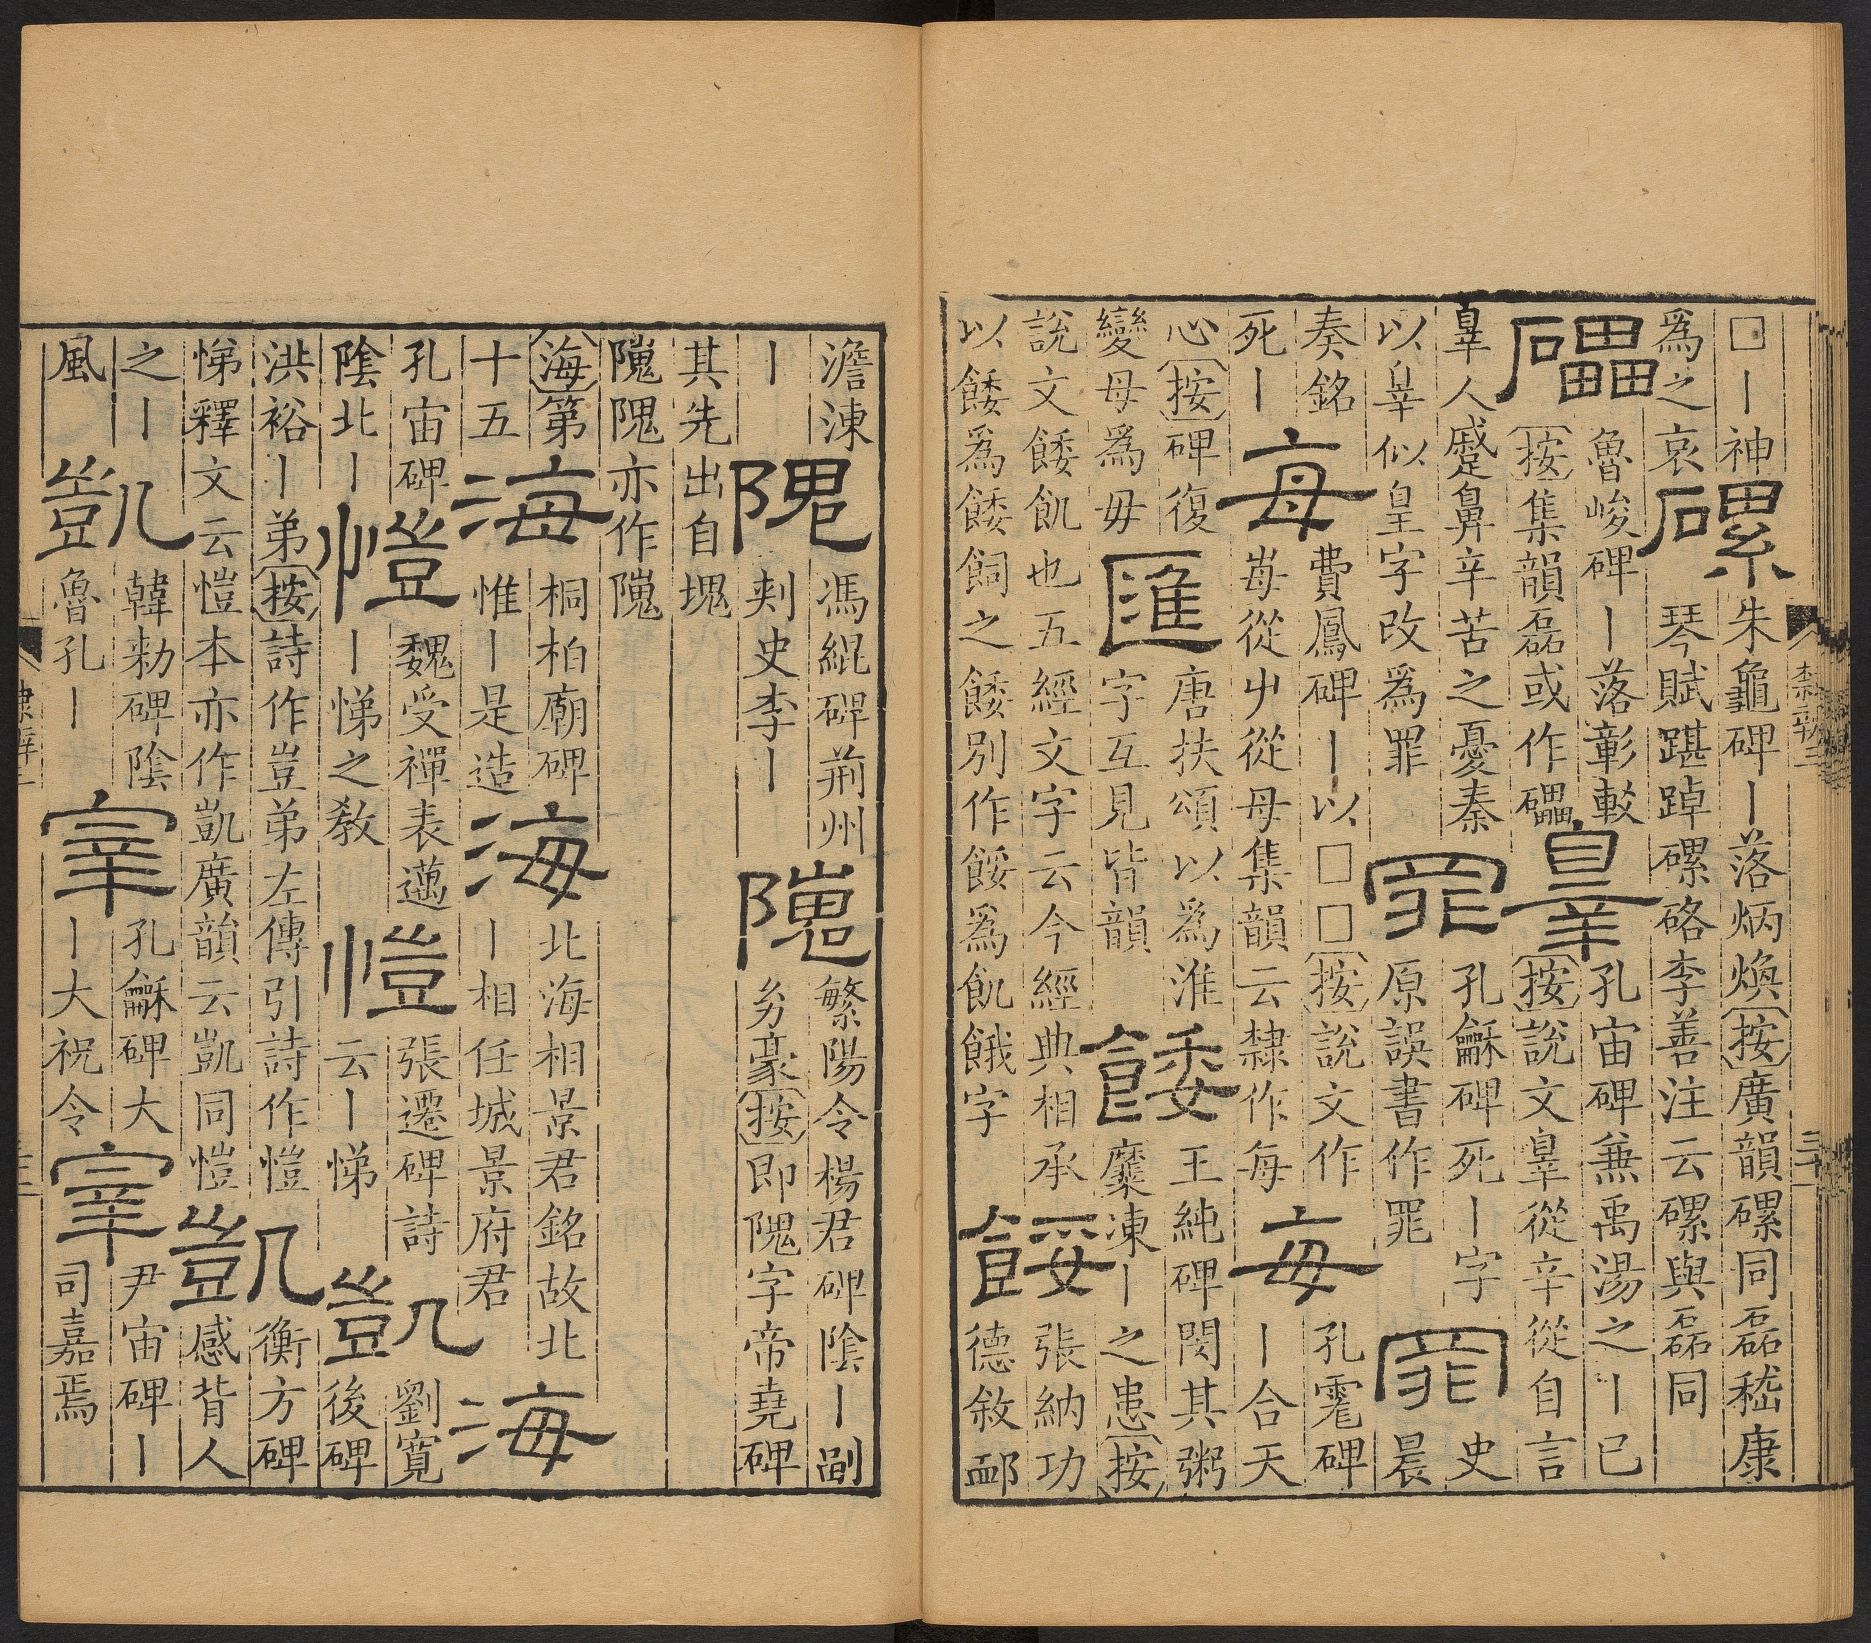 □丨神
為之哀
磥
朱龜碑丨落炳煥按廣韻磥同磊嵇康
琴賦踸踔磥硌李善注云磥與磊同
礧
魯峻碑丨落彰較
按集韻磊或作礧
辠
孔宙碑兼禹湯之丨已
按說文辠從辛從自言
辠人蹙鼻辛苦之憂秦
以辠似皇字改為罪
罪
孔龢碑死丨字
原誤書作罪
罪
史
晨
奏銘
死丨
每
費鳳碑丨以□□按說文作
毎從屮從母集韻云隸作每
每
孔霮碑
丨合天
心按碑復
變母為毋
匯
唐扶頌以為淮
字互見皆韻
餧
王純碑閔其粥
糜凍丨之患按
說文餧飢也五經文字云今經典相承
以餧為餧飼之餧別作餒為飢餓字
餒
張納功
德敘衈
隸辨三
三十
澹涷
丨
隗
馮緄碑荊州
刾史李丨
隗
繁陽令楊君碑陰丨
豪按即隗字帝堯碑
其先出自塊
隗隗亦作隗
海第
十五
海
桐柏廟碑
惟丨是造
海
北海相景君銘故北
丨相任城景府君
海
孔宙碑
陰北丨
愷
魏受禪表邁
丨悌之教
愷
張遷碑詩
云丨悌
凱
劉寬
後碑
洪裕丨弟按詩作豈弟左傳引詩作愷
悌釋文云愷本亦作凱廣韻云凱同愷
凱
衡方碑
感背人
之丨
風
凱
韓勑碑陰
魯孔丨
宰
孔龢碑大
丨大祝令
宰
尹宙碑丨
司嘉焉